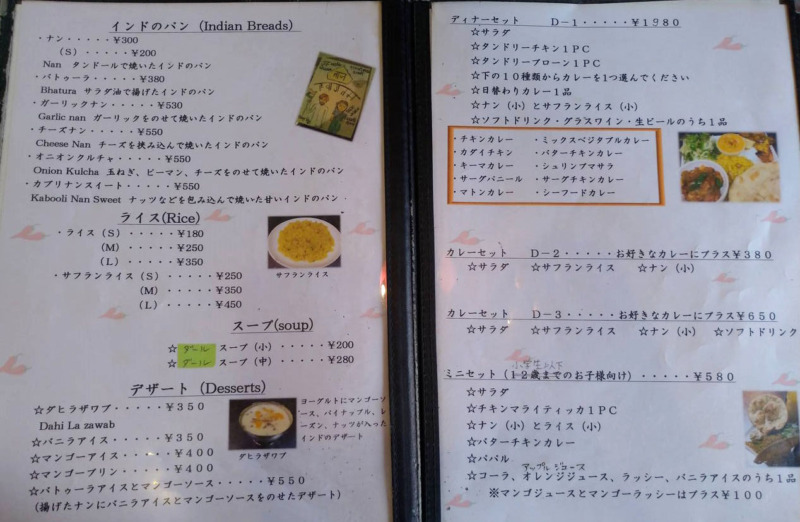 インドのパン (Indian Breads)
・ナン・・・・・¥300
(S)・・・・・¥200
Nan タンドールで焼いたインドのパン
・バトゥーラ・・・・・¥380
Bhatura サラダ油で揚げたインドのパン
・ガーリックナン・・・・・¥530
Garlic nan ガーリックをのせて焼いたインドのパン
・チーズナン・・・・・¥550
Cheese Nan チーズを挟み込んで焼いたインドのパン
・オニオンクルチャ・・・・・¥550
Onion Kulcha 玉ねぎ、ピーマン、チーズをのせて焼いたインドのパン
・カブリナンスイート・・・・・¥550
Kabooli Nan Sweet ナッツなどを包み込んで焼いた甘いインドのパン・
ライス(Rice)
・ライス (S)・・・・・¥180
(M)・・・・・¥250
(L)・・・・・¥350
・サフランライス (S)・・・・・¥250
(M)・・・・・¥350
(L)・・・・・¥450
サフランライス
スープ(soup)
☆ ダール スープ (小)・・・・・¥200
☆ ダール スープ (中)・・・・・¥280
デザート (Desserts)
☆ダヒラザワブ・・・・・¥350
Dahi La zawab
☆バニラアイス・・・・・¥350
☆マンゴーアイス・・・・・¥400
☆マンゴープリン・・・・・¥400
☆バトゥーラアイスとマンゴーソース・・・・・¥550
(揚げたナンにバニラアイスとマンゴーソースをのせたデザート)
ダヒラザワブ
ヨーグルトにマンゴーソ
ース、パイナップル、レ
ーズン、ナッツが入った
インドのデザート
ディナーセット D-1・・・・・¥1980
☆サラダ
☆タンドリーチキン1PC
☆タンドリープローン1PC
☆下の10種類からカレーを1つ選んでください
☆日替わりカレー1品
☆ナン (小) とサフランライス (小)
☆ソフトドリンク・グラスワイン・生ビールのうち1品
・チキンカレー ・ミックスベジタブルカレー
・カダイチキン ・バターチキンカレー
・キーマカレー ・シュリンプマサラ
・サーグパニール ・サーグチキンカレー
・マトンカレー ・シーフードカレー
カレーセット D-2・・・・・お好きなカレーにプラス¥380
☆サラダ ☆サフランライス ☆ナン (小)
カレーセット D-3・・・・・お好きなカレーにプラス¥650
☆サラダ ☆サフランライス ☆ナン (小) ☆ソフトドリンク
小学生以下
ミニセット (12歳までのお子様向け)・・・・・¥580
☆サラダ
☆チキンマライティッカ1PC
☆ナン (小) とライス (小)
☆バターチキンカレー
☆パパル
アップルジュース
☆コーラ、オレンジジュース、ラッシー、バニラアイスのうち1品
※マンゴジュースとマンゴーラッシーはプラス¥100